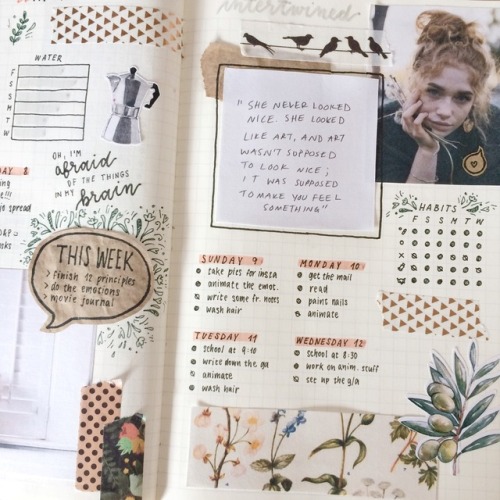 WATER
F
S
S
M
T
W
OH, I'M
afraid
OF THE THINGS
IN MY brain
THIS WEEK
> finish 12 principles
> do the emotions
> movie journal
intertwined
"SHE NEVER LOOKED
NICE. SHE LOOKED
LIKE ART, AND ART
WASN'T SUPPOSED
TO LOOK NICE;
IT WAS SUPPOSED
TO MAKE YOU FEEL
SOMETHING"
HABITS
F S S M T W
SUNDAY 9
take pics for insta
animate the emot.
write some fr. notes
wash hair
MONDAY 10
get the mail
read
paint nails
animate
TUESDAY 11
school at 9:10
write down the ga
animate
wash hair
WEDNESDAY 12
school at 8:30
work on anim. stuff
set up the g/a